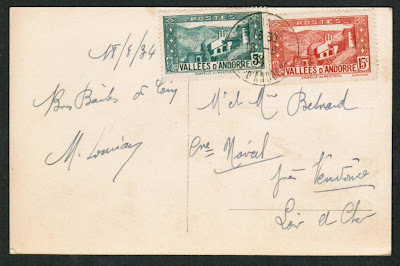 POSTES
VALLÉES D'ANDORRE
5c
POSTES
VALLÉES D'ANDORRE
15c
18/8/34
Bons Baisers de
M et Mme Besnard
Naveil
près Vendôme
Loir et Cher